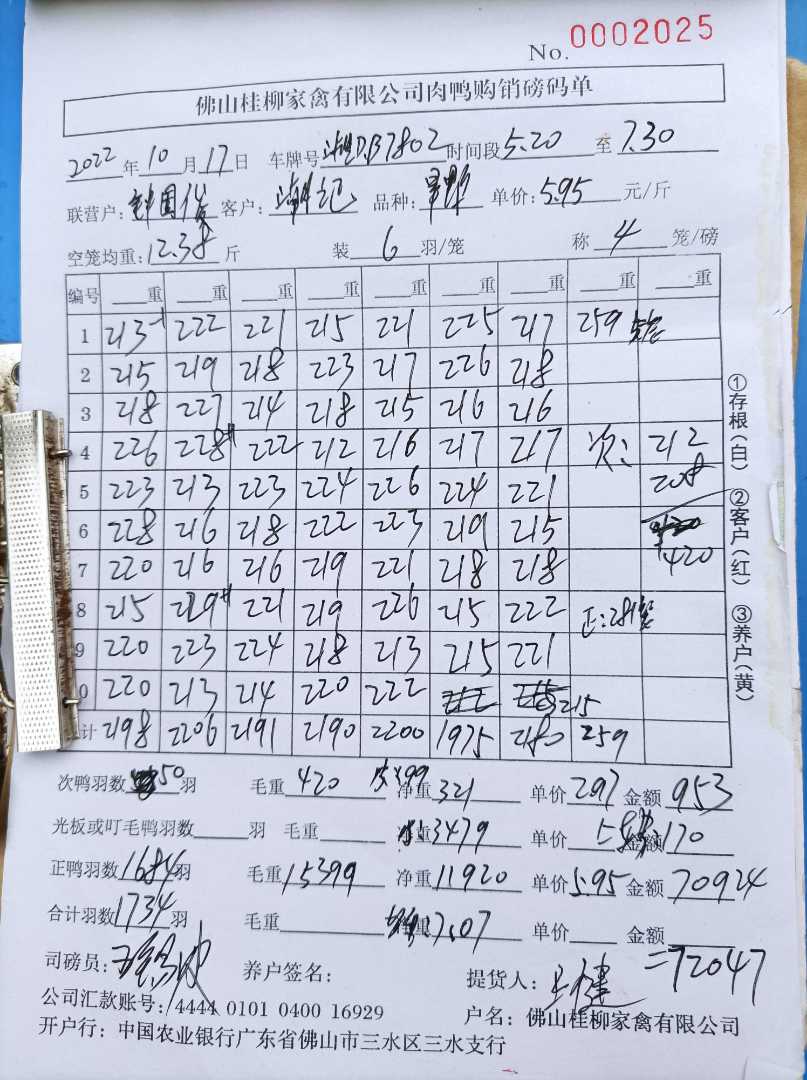 No. 0002025
佛山桂柳家禽有限公司肉鸭购销磅码单
2022年10月17日 车牌号湘D.B7802时间段5.20至7.30
联营户: 客户: 品种: 单价:5.95元/斤
空笼均重:12.38斤 装6羽/笼 称4笼/磅
编号 重 重 重 重 重 重 重 重 重
1 213 222 221 215 221 225 217 259
2 215 219 218 223 217 226 218
3 218 227 214 218 215 216 216
4 226 228 222 212 216 217 217 次: 212
5 223 213 223 224 226 224 221 208
6 228 216 218 222 223 219 215
7 220 216 216 219 221 218 218 420
8 215 229 221 219 226 215 222 正:281笼
9 220 223 224 218 213 215 221
0 220 213 214 220 222 215
计 2198 2206 2191 2190 2200 1975 2180 259
次鸭羽数50羽 毛重420 皮99 净重321 单价2.97金额953
光板或叮毛鸭羽数 羽 毛重 3479 单价 金额170
正鸭羽数1684羽 毛重15399 净重11920 单价5.95金额70924
合计羽数1734羽 毛重 7.07 单价 金额
=72047
司磅员: 养户签名: 提货人:王健
公司汇款账号:4444 0101 0400 16929 户名:佛山桂柳家禽有限公司
开户行:中国农业银行广东省佛山市三水区三水支行
①存根(白) ②客户(红) ③养户(黄)